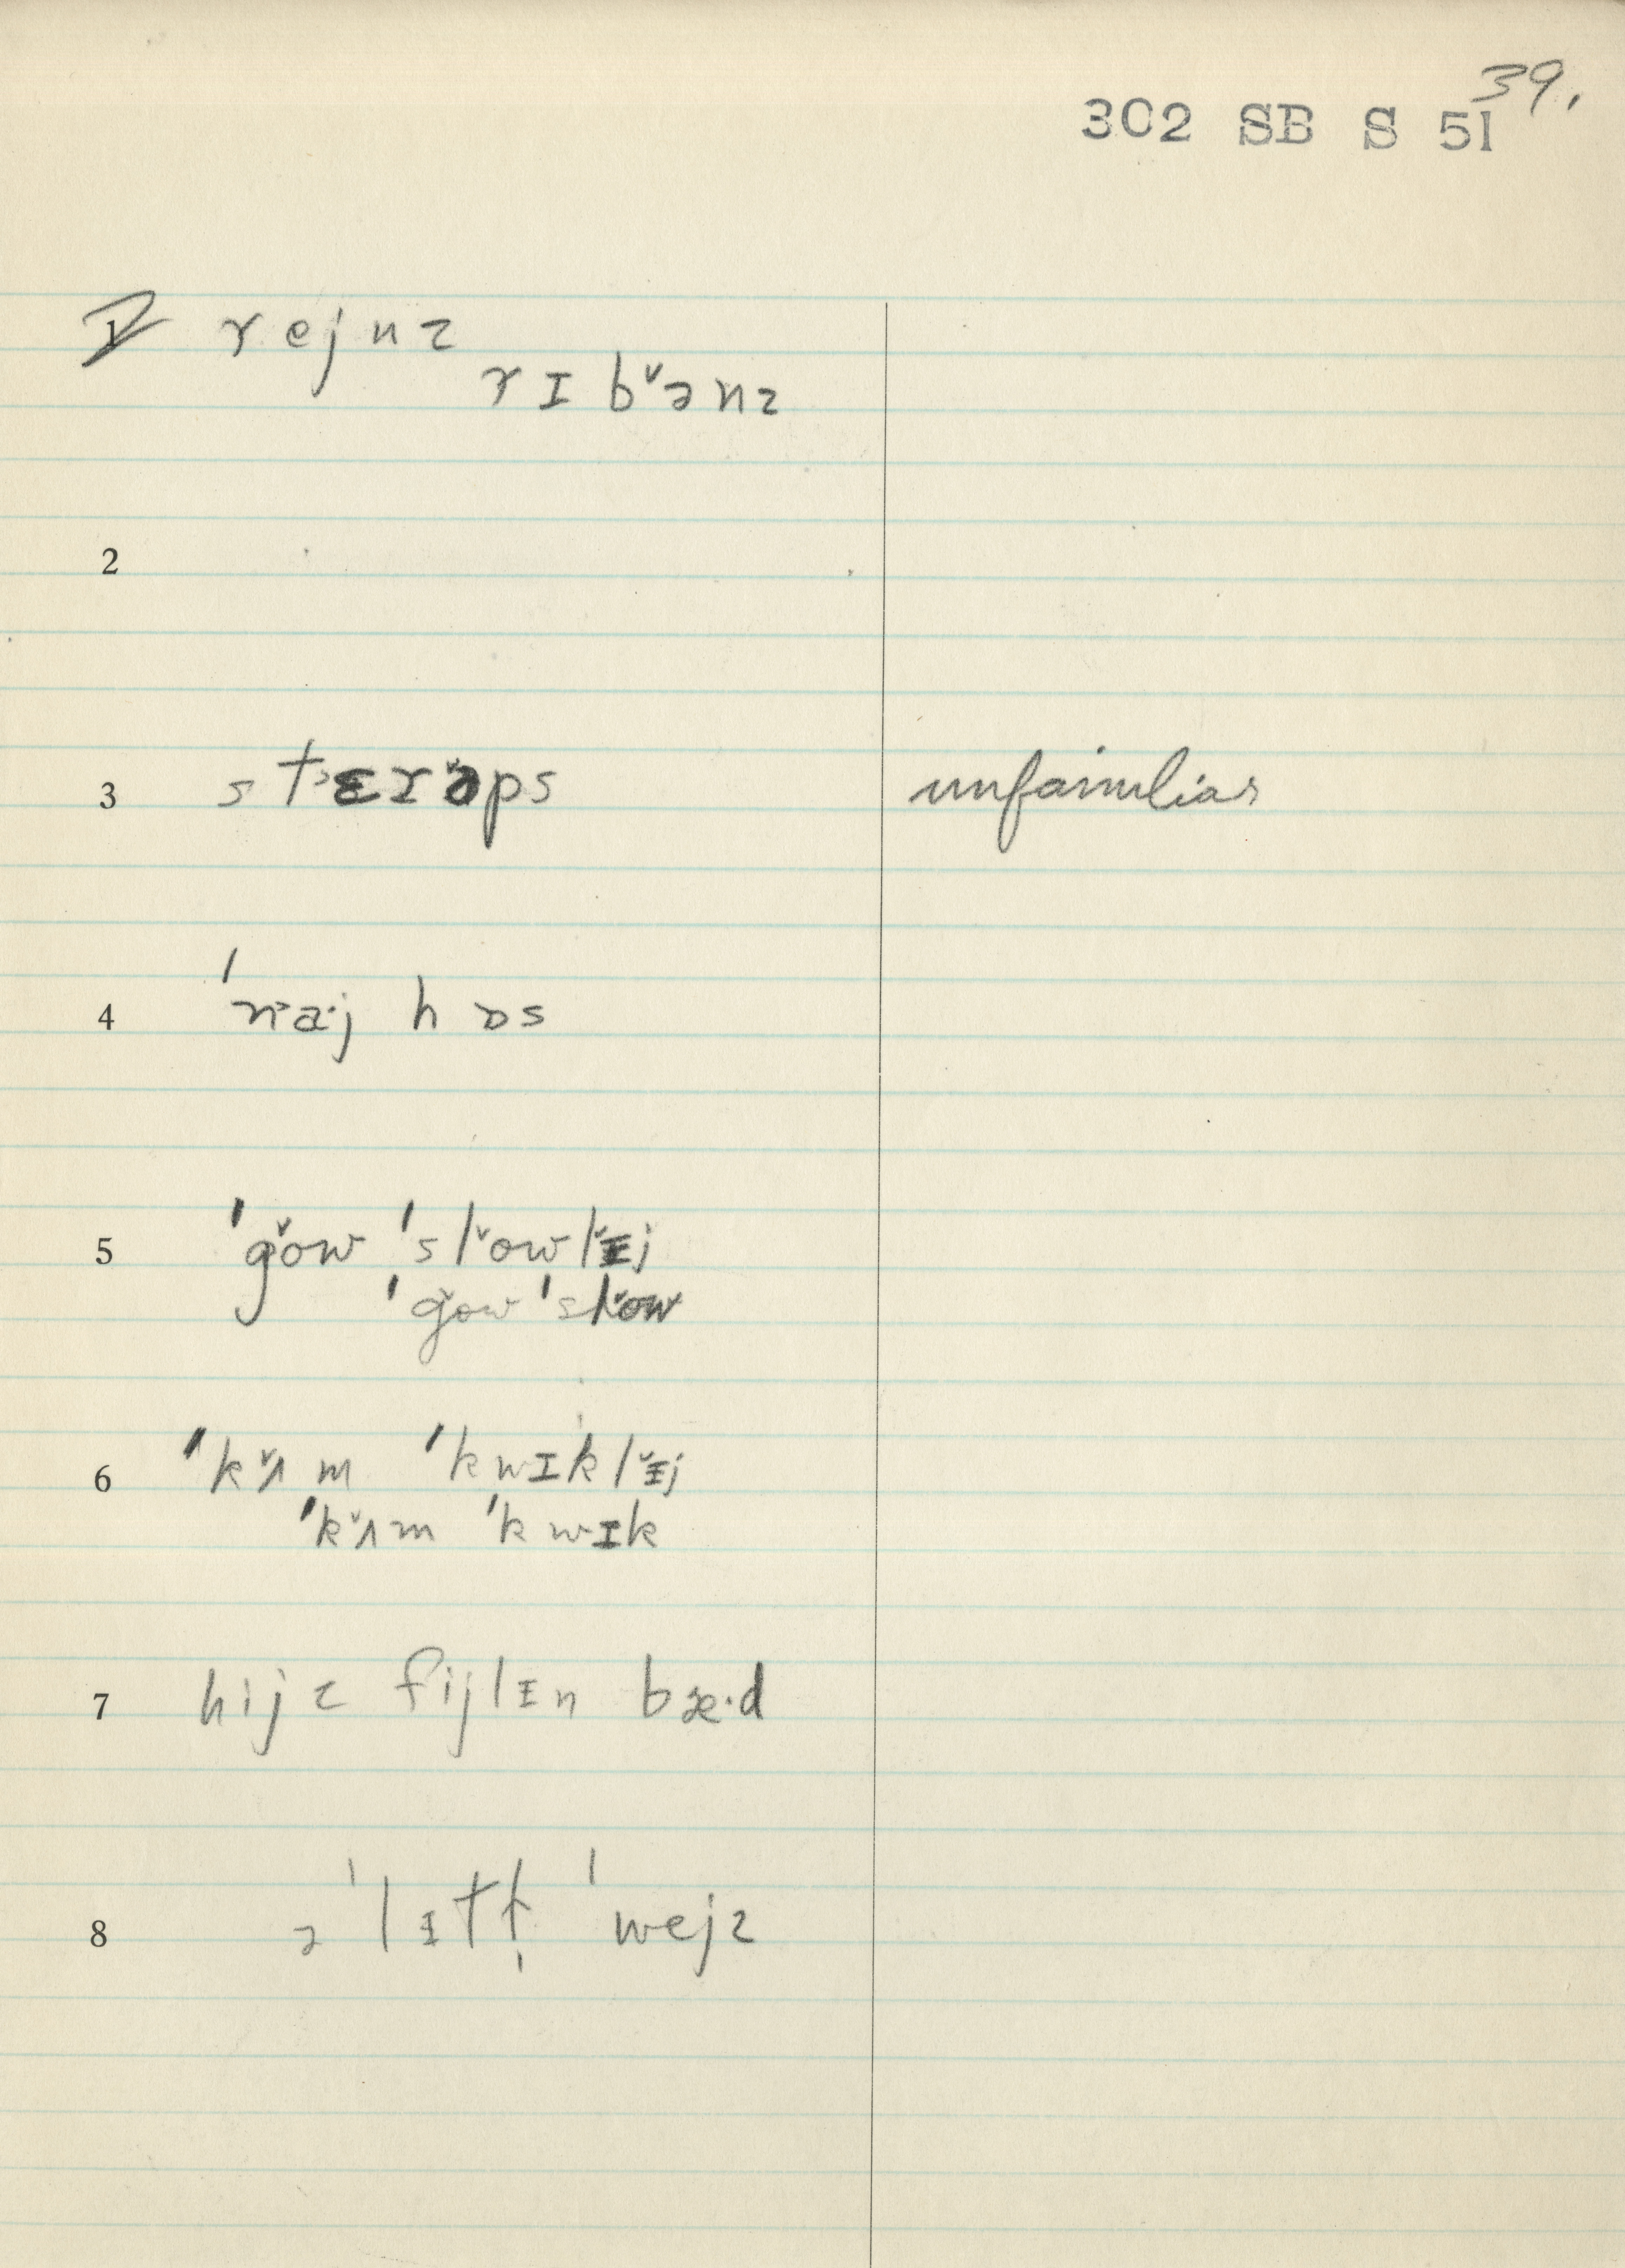 39.
302 SB S 51
1 rejnz
rɪb˅ənz
2
3 stɛr˅əps unfamiliar
4 ˈnaˑj hɒs
5 ˈg˅ow ˈsl˅owl˅ɪj
ˈg˅ow ˈsl˅ow
6 ˈk˅ʌm ˈkwɪkl˅ɪj
ˈk˅ʌm ˈkwɪk
7 hijz fijlɪn bæˑd
8 ə ˈlɪtl̩ ˈwejz